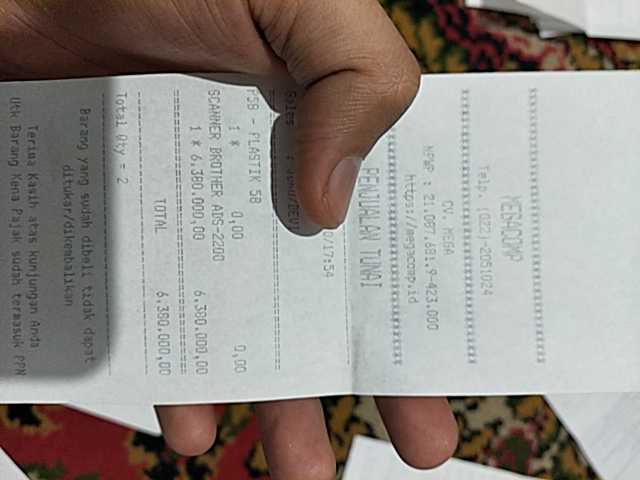 MEGACOMP
Telp. (022)-2051024
CV. MEGA
NPWP : 21.087.681.9-423.000
https://megacomp.id
PENJUALAN TUNAI
0/17:54
Sales :
PSB - PLASTIK 58
1 * 0,00 0,00
SCANNER BROTHER ADS-2200
1 * 6.380.000,00 6.380.000,00
TOTAL 6.380.000,00
Total Qty = 2
Barang yang sudah dibeli tidak dapat
ditukar/dikembalikan
Terima Kasih atas kunjungan Anda
Utk Barang Kena Pajak sudah termasuk PPN